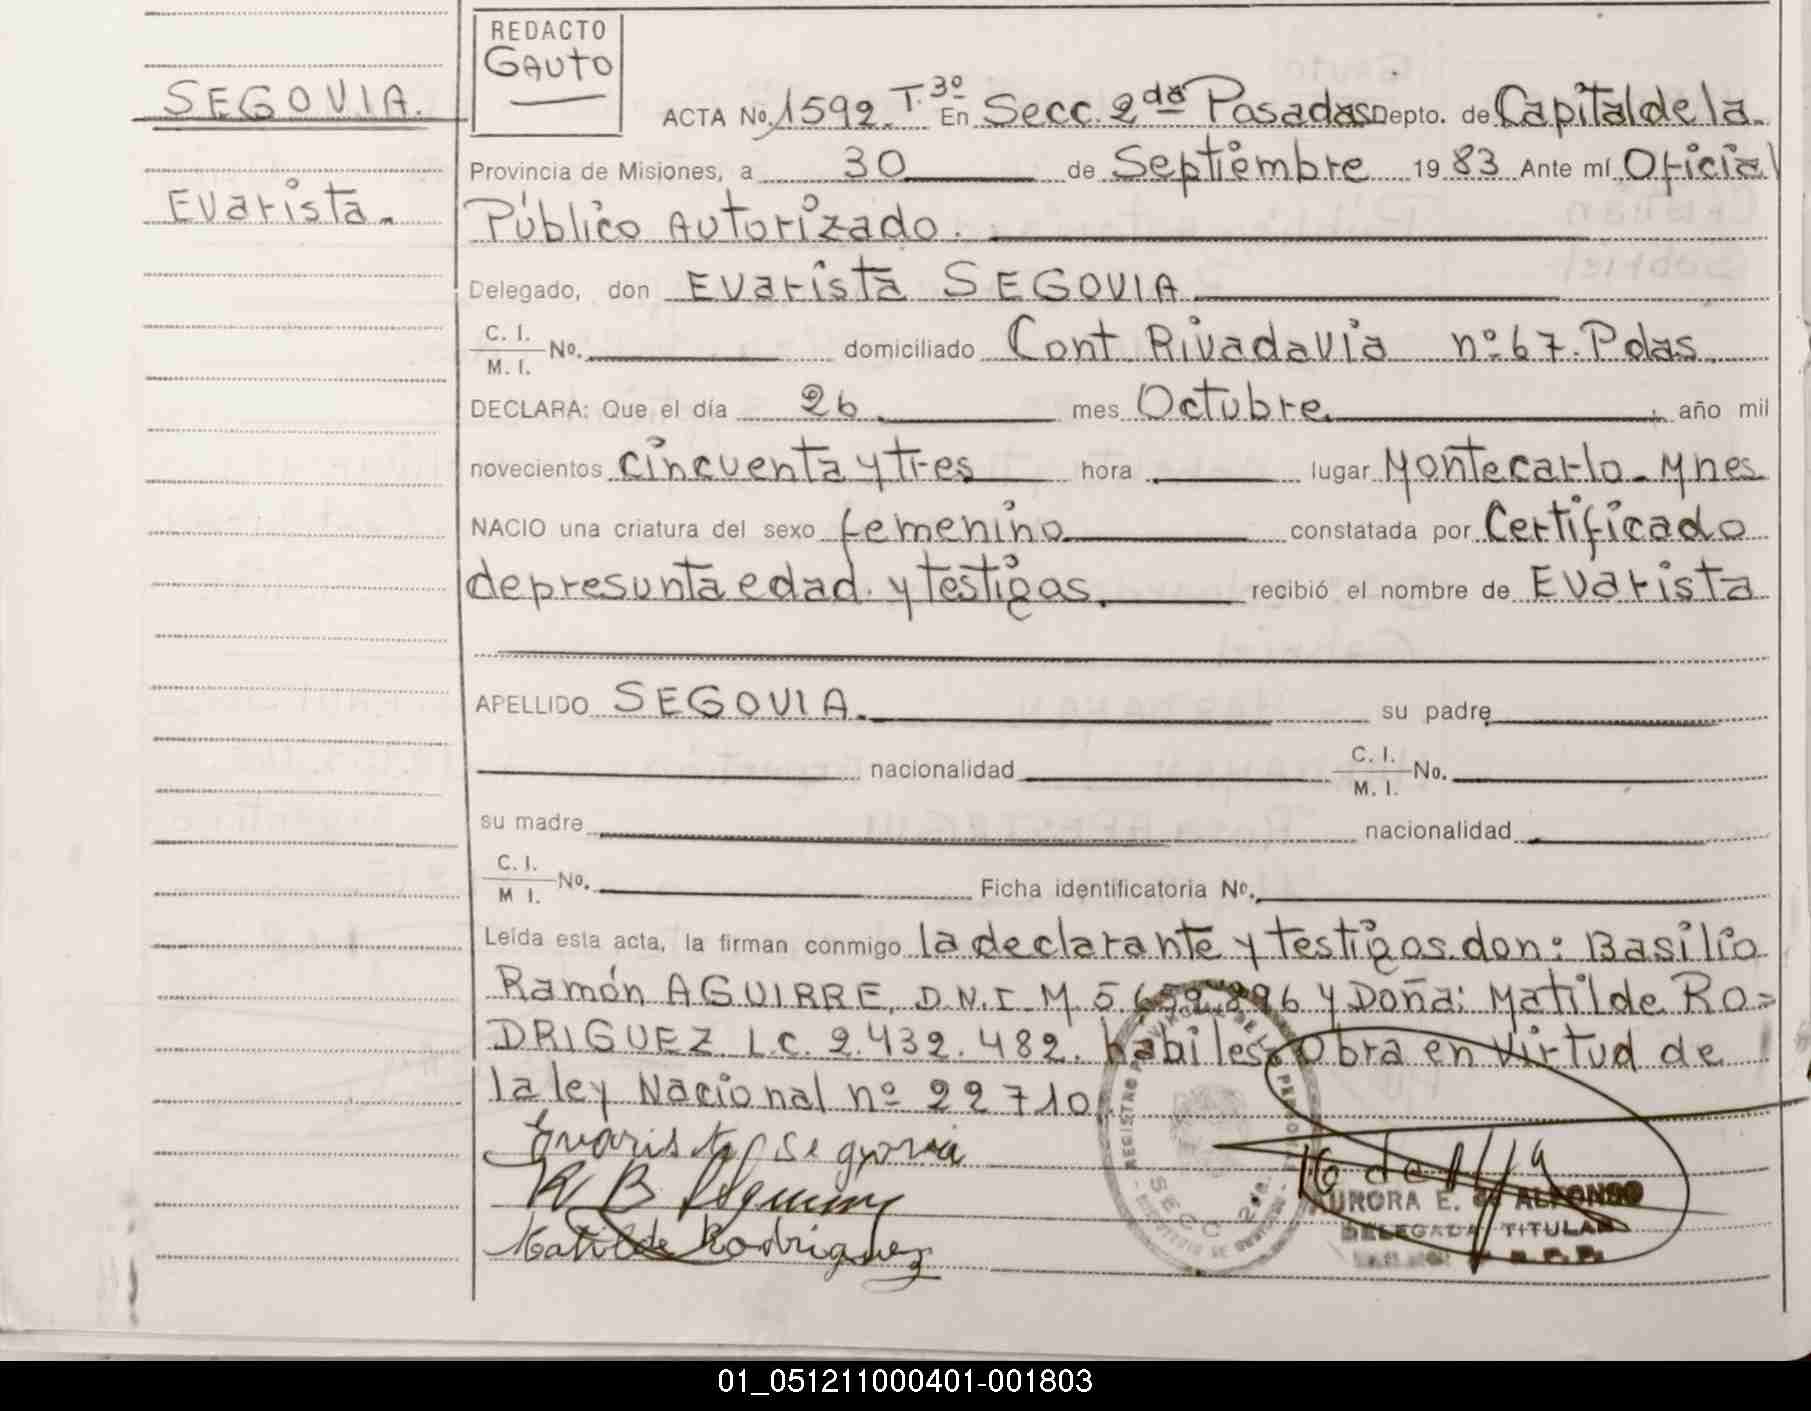 REDACTO
GAUTO
SEGOVIA.
Evarista.
ACTA No. 1592. T. 3º En Secc. 2da Posadas Depto. de Capital de la
Provincia de Misiones, a 30 de Septiembre 1983 Ante mí Oficial
Público Autorizado.
Delegado, don Evarista SEGOVIA
C. I.
M. I. No. domiciliado Cont. Rivadavia nº 67. Pdas.
DECLARA: Que el día 26. mes Octubre. año mil
novecientos cincuenta y tres hora lugar Montecarlo - Mnes
NACIO una criatura del sexo femenino constatada por Certificado
de presunta edad. y testigos. recibió el nombre de Evarista
APELLIDO SEGOVIA. su padre
nacionalidad C. I.
M. I. No.
su madre nacionalidad
C. I.
M I. No. Ficha identificatoria No.
Leída esta acta, la firman conmigo la declarante y testigos. don: Basilio
Ramón AGUIRRE, D.N.I. M. 5.659.896 y Doña: Matilde RO=
DRIGUEZ. L.C. 2.432.482. habiles. Obra en virtud de
la ley Nacional nº 22710.
Evarista Segovia
R B Aguirre
Matilde Rodriguez
REGISTRO PROVINCIAL DE
SECC. 2da.
AURORA E. de ALFONSO
DELEGADA TITULAR
01_051211000401-001803